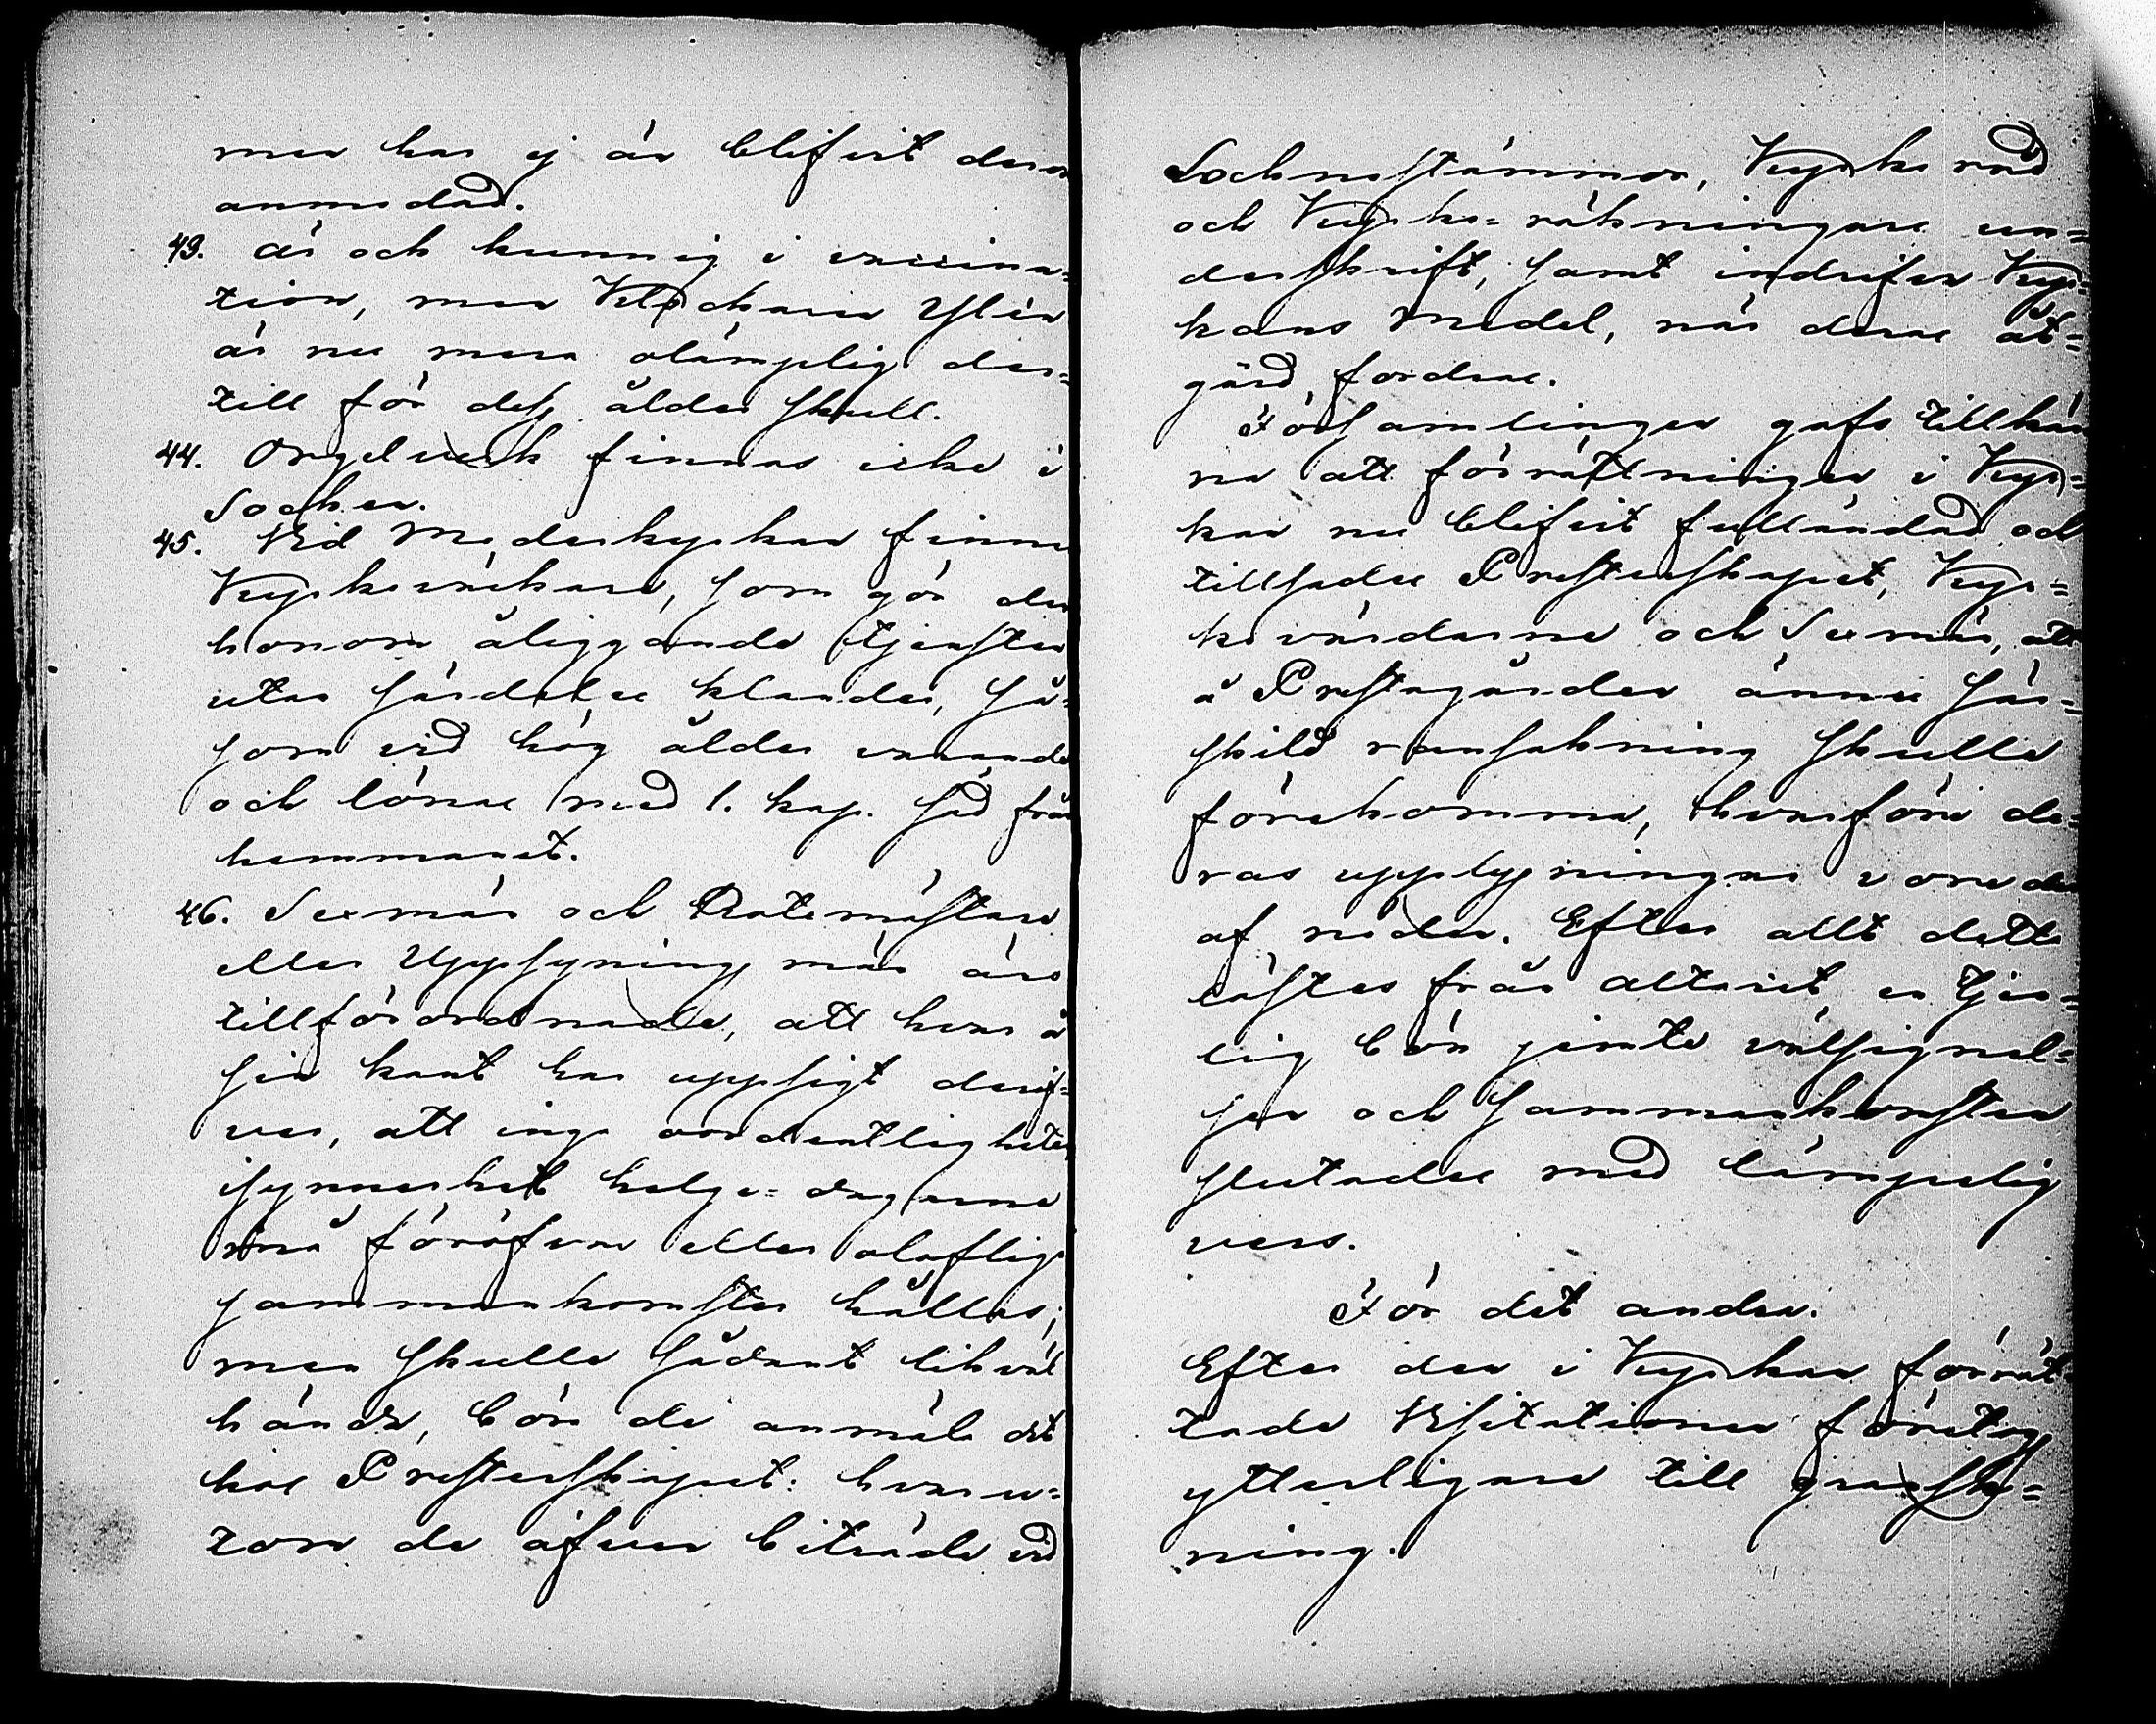 men han ej än blifvit derom
anmodad.
43. är och kunnig i vaccina-
tion, men Klockaren Ylén
är nu mera olämplig der-
till för dess ålder skull.
44. Orgelverk finnas icke i
Socknen.
45. Vid Moderkyrkan finnes
Kyrkoväktare, som gör den
honom åliggande tjensten
utan särdeles klander, så-
som vid hög ålder varande
och lönas med 1. kap. säd från
hemmanet.
46. Sexmän och Rotemästare
eller Uppsyningsmän äro
tillförordnade, att hvar å
sin kant har uppsigt deröf-
ver, att inga oordentligheter
isynnerhet helge-dagarne
må föröfvas eller olaflige
sammankomster hållas;
men skulle sådant likväl
hända, böra de anmäla det
hos Presterskapet: hvaru-
tom de äfven biträda vid
Sochnestämmor, Kyrko råd
och Kyrko-räkningars un-
derskrift, samt indrifva Kyr-
kans Medel, när deras åt-
gärd fordras.
Församlingen gafs tillkän-
na att förrättningen i Kyr-
kan nu blifvit fulländad och
tillsades Presterskapet, Kyr-
kovärdarne och Sexmän, att
å Prestagården ännu sär-
skild ransakning skulle
förekomma, hvarföre de-
ras upplysningar vore der
af nöden. Efter allt detta
lästes från altaret en tjen-
lig bön jemte välsignel-
sen och Sammankomsten
slutades med lämpelig
vers.
För det andra.
Efter den i Kyrkan förrät-
tade Visitationen företogs
ytterligare till gransk-
ning.